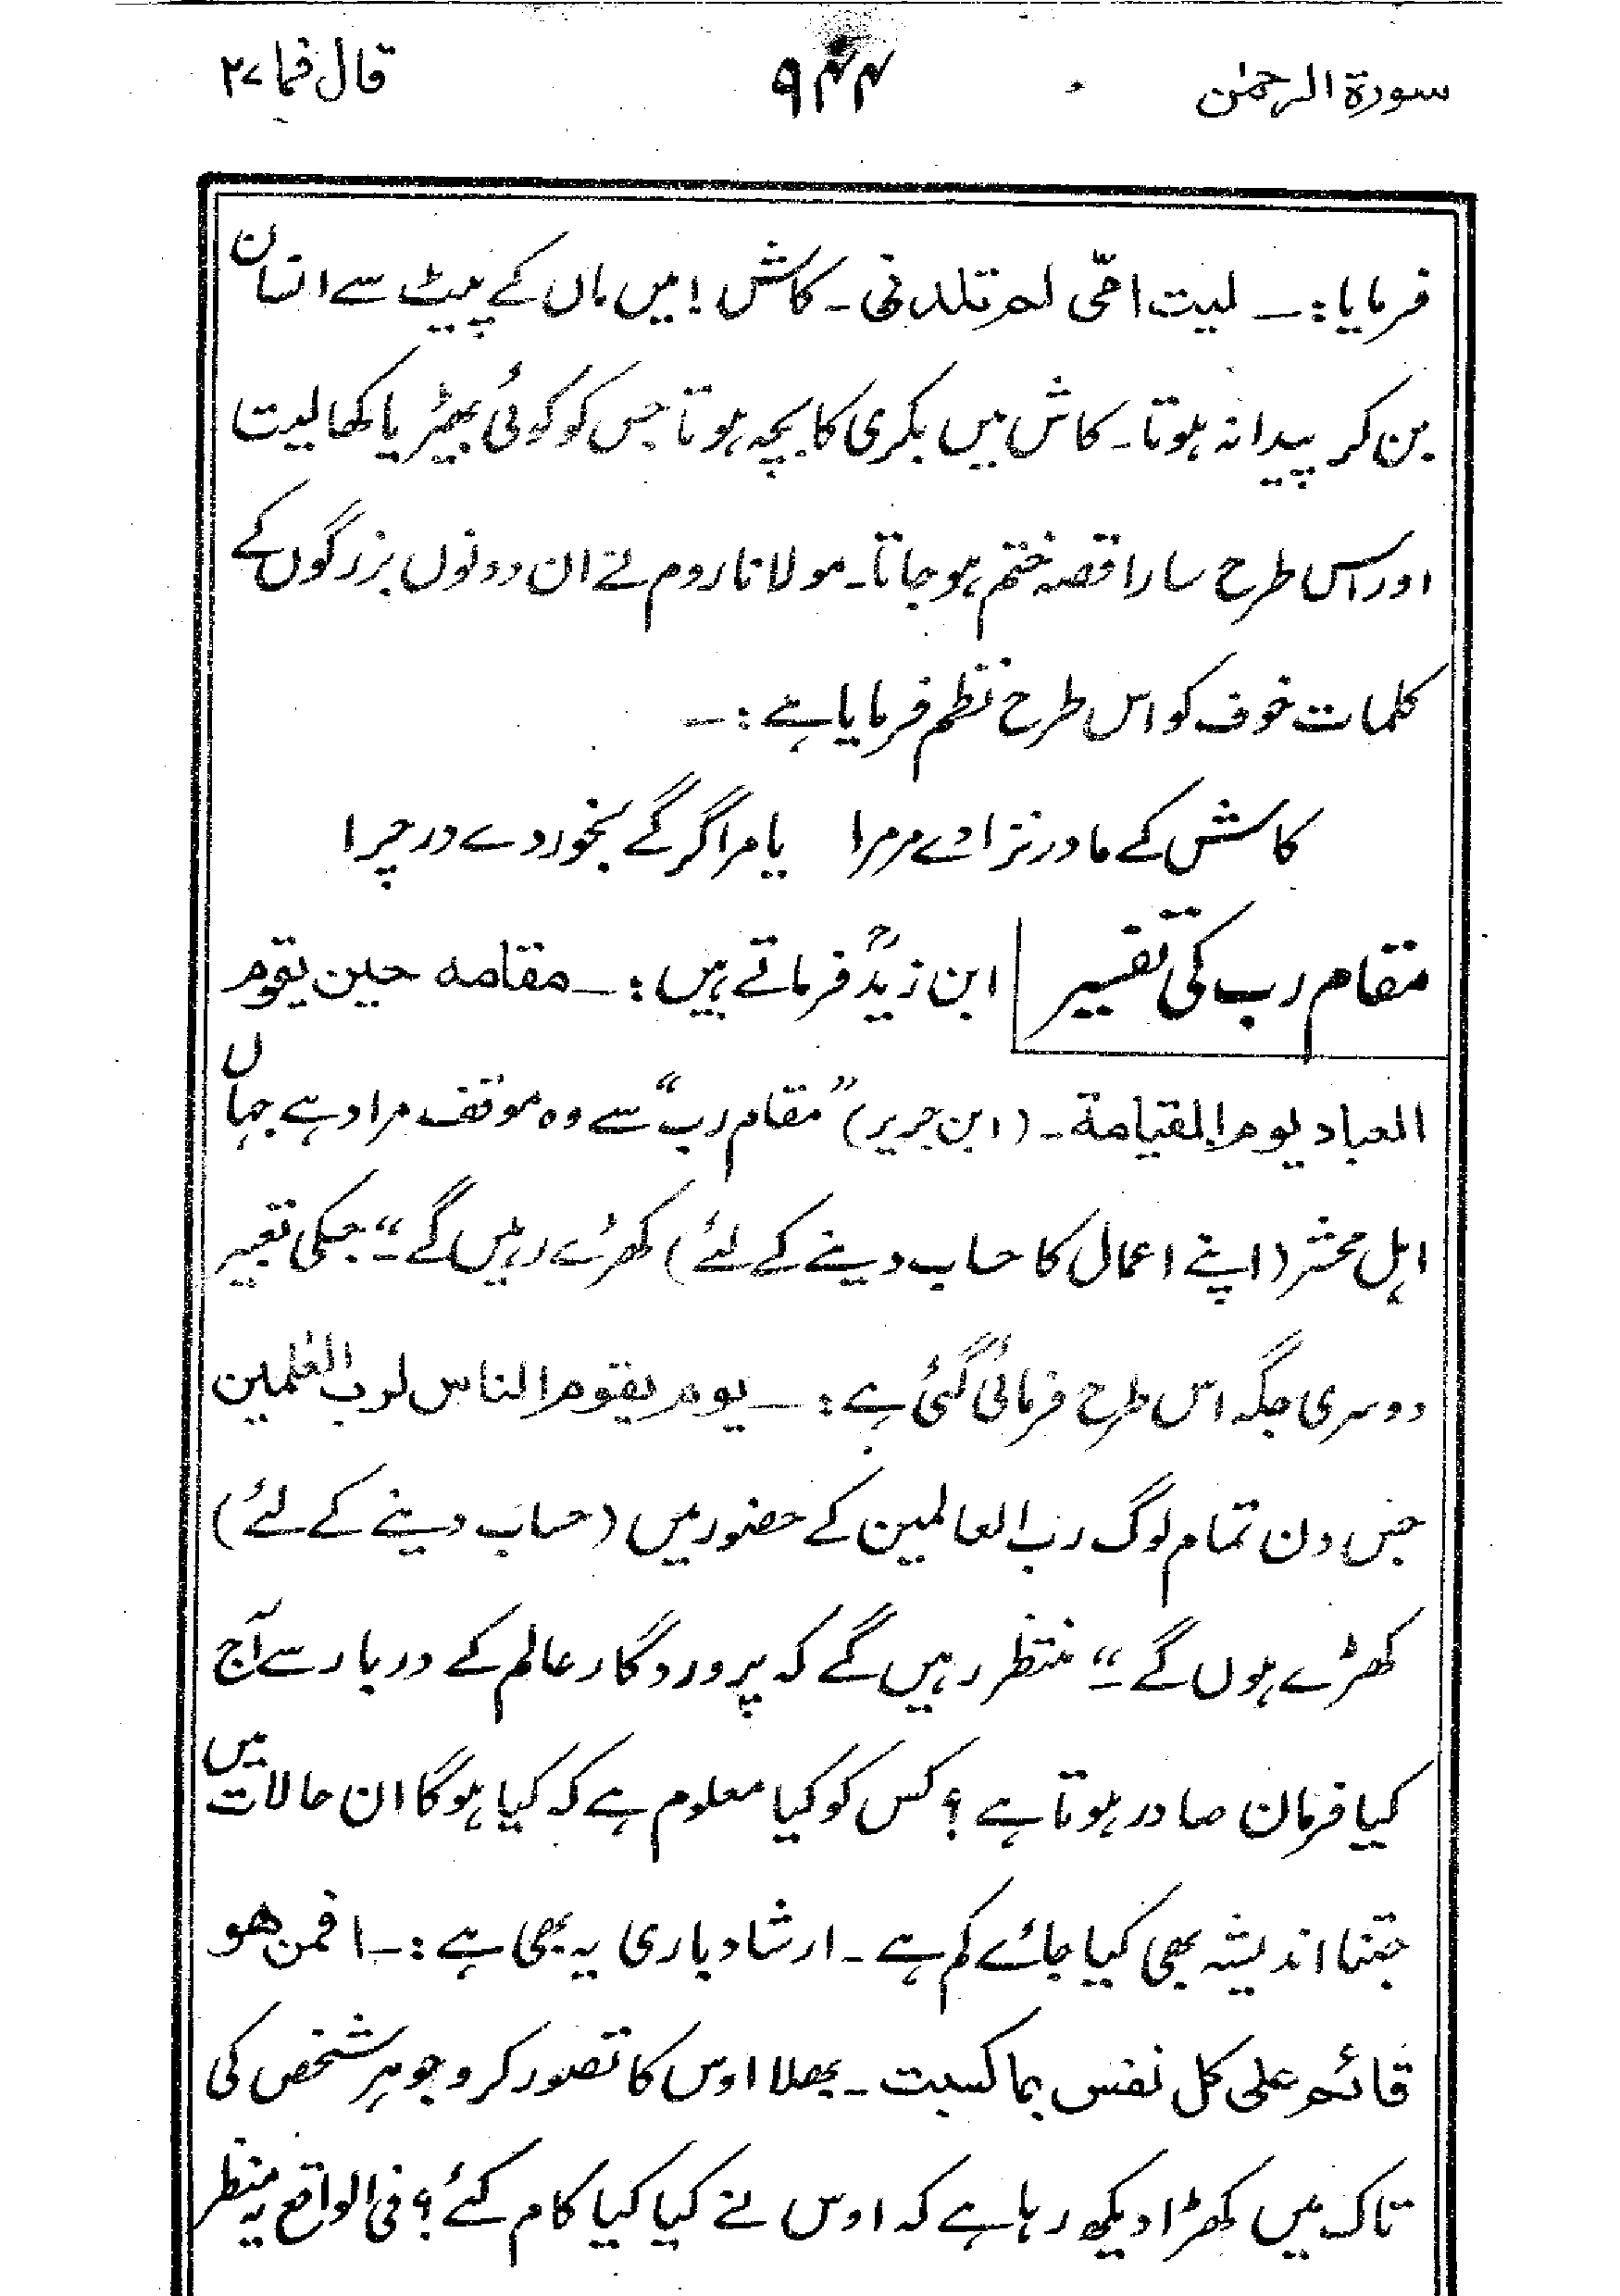 سورۃ الرحمٰن ۹۴۴ قال فما ۲۷
فرمایا:۔ لیت امّی لم تلدنی۔ کاش! میں ماں کے پیٹ سے انسان
بن کر پیدا نہ ہوتا۔ کاش میں بکری کا بچہ ہوتا جس کو کوئی بھیڑیا کھا لیت
اور اس طرح سارا قصہ ختم ہو جاتا۔ مولانا روم نے ان دونوں بزرگوں کے
کلمات خوف کو اس طرح نظم فرمایا ہے:۔
کاش کے مادر نزادے مر مرا یا مرا گرگے بخوردے در چرا
مقام رب کی تفسیر ابن زیدؒ فرماتے ہیں:۔ مقامہ حین یقوم
العباد یوم القیامة۔ (ابن جریر) ”مقام رب“ سے وہ موقف مراد ہے جہاں
اہل محشر (اپنے اعمال کا حساب دینے کے لئے) کھڑے رہیں گے۔“ جسکی تعبیر
دوسری جگہ اس طرح فرمائی گئی ہے:۔ یوم یقوم الناس لرب العٰلمین
جس دن تمام لوگ رب العالمین کے حضور میں (حساب دینے کے لئے)
کھڑے ہوں گے۔“ منتظر رہیں گے کہ پروردگار عالم کے دربار سے آج
کیا فرمان صادر ہوتا ہے؟ کس کو کیا معلوم ہے کہ کیا ہوگا ان حالات میں
جتنا اندیشہ بھی کیا جائے کم ہے۔ ارشاد باری یہ بھی ہے:۔ افمن ھو
قائم علی کل نفس بما کسبت۔ بھلا اوس کا تصور کرو جو ہر شخص کی
تاک میں کھڑا دیکھ رہا ہے کہ اوس نے کیا کیا کام کئے؟ فی الواقع یہ منظر